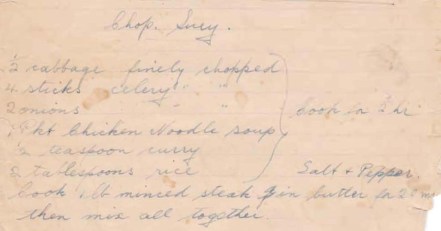 Chop. Suey.
½ cabbage finely chopped
4 sticks celery " "
2 onions " "
pkt Chicken Noodle soup
½ teaspoon curry
2 tablespoons rice
Cook for hr
Salt & Pepper.
Cook lb minced steak in butter for
then mix all together.